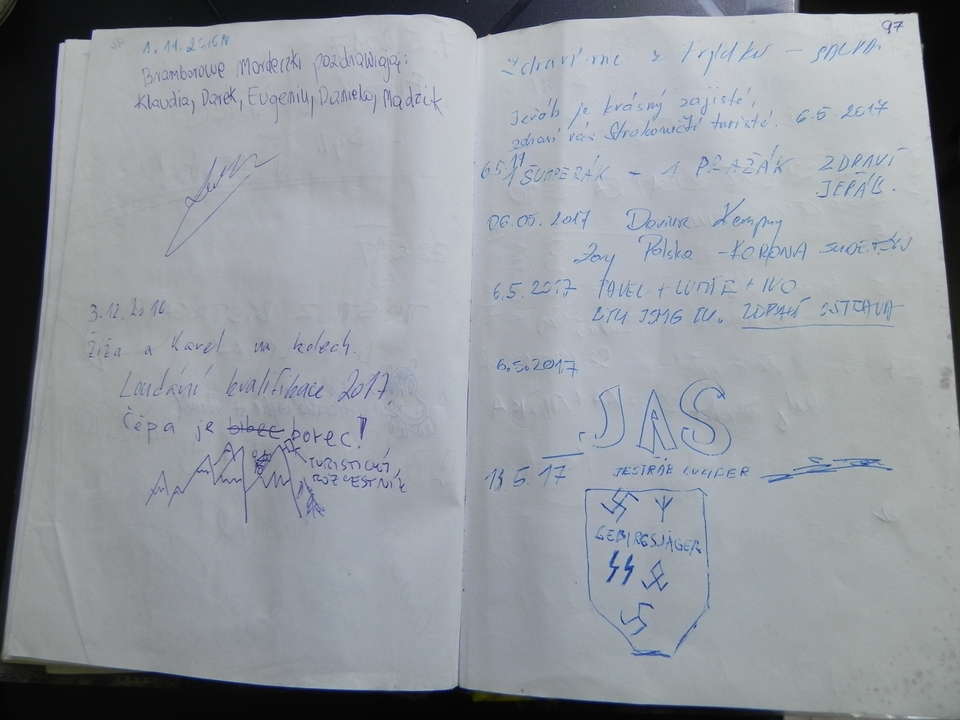 1.11.2016
Bramborowe Mordeczki pozdrawiają:
Klaudia, Darek, Eugeniu, Daniela, Madzik
3.12.2016
Žiža a Karel na kolech.
Loudání kvalifikace 2017.
Čépa je borec!
TURISTICKÝ
ROZCESTNÍK
97
Zdravíme z Frýdku –
Jeřáb je krásný zajisté,
zdraví vás Strakoničtí turisté. 6.5.2017
6.5.17
1 ŠUMPERÁK + 1 PRAŽÁK ZDRAVÍ
JEŘÁB.
06.05.2017 Dariusz Kempny
Żory Polska – KORONA SUDETÓW
6.5.2017 PAVEL + LUCIE + IVO
BYLI JSME TU. ZDRAVÍ OSTRAVA
6.5.2017
JAS
13.5.17 JESTŘÁB LUCIFER
GEBIRGSJÄGER